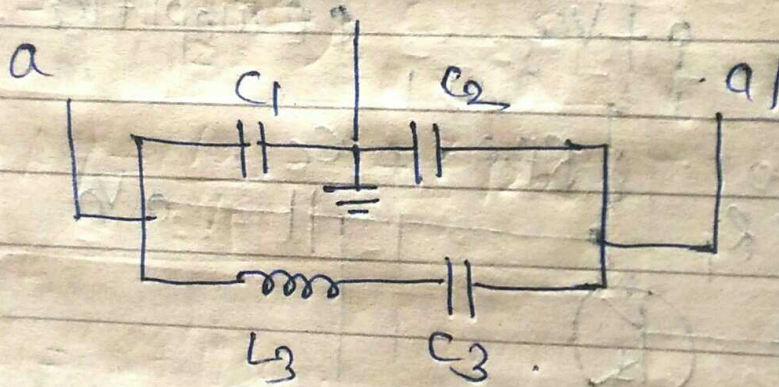 a
C1
C2
a'
L3
C3